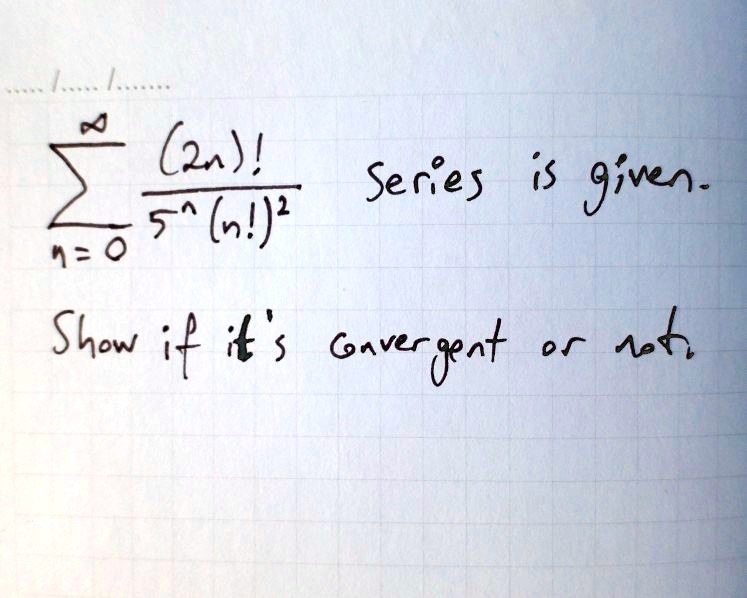 ...../...../.......
∞
∑ (2n)! / 5ⁿ (n!)² series is given.
n=0
Show if it's convergent or not.